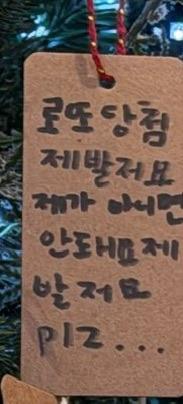 로또 당첨
제발저요
제가 아니면
안돼요제
발 저요
plz...